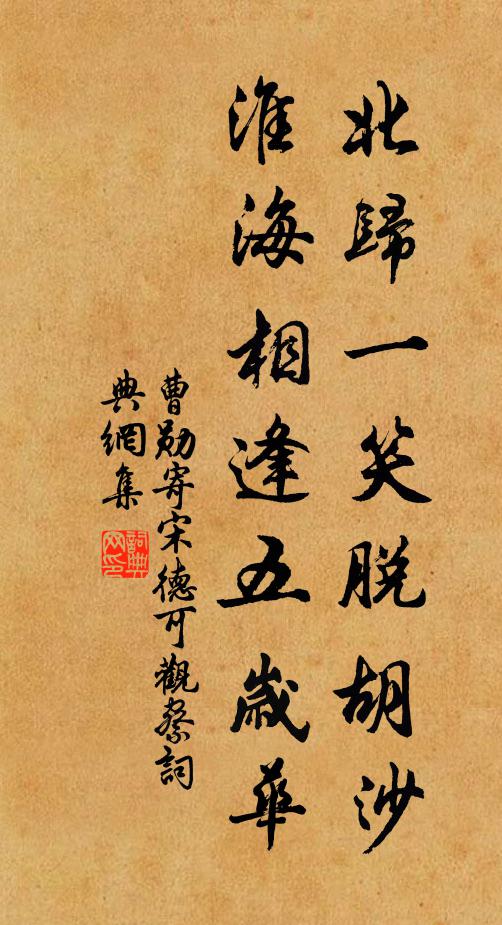 北歸一笑脱胡沙
淮海相逢五歲華
曹勋寄宋德可觀察詞
典網集
詞典
网印